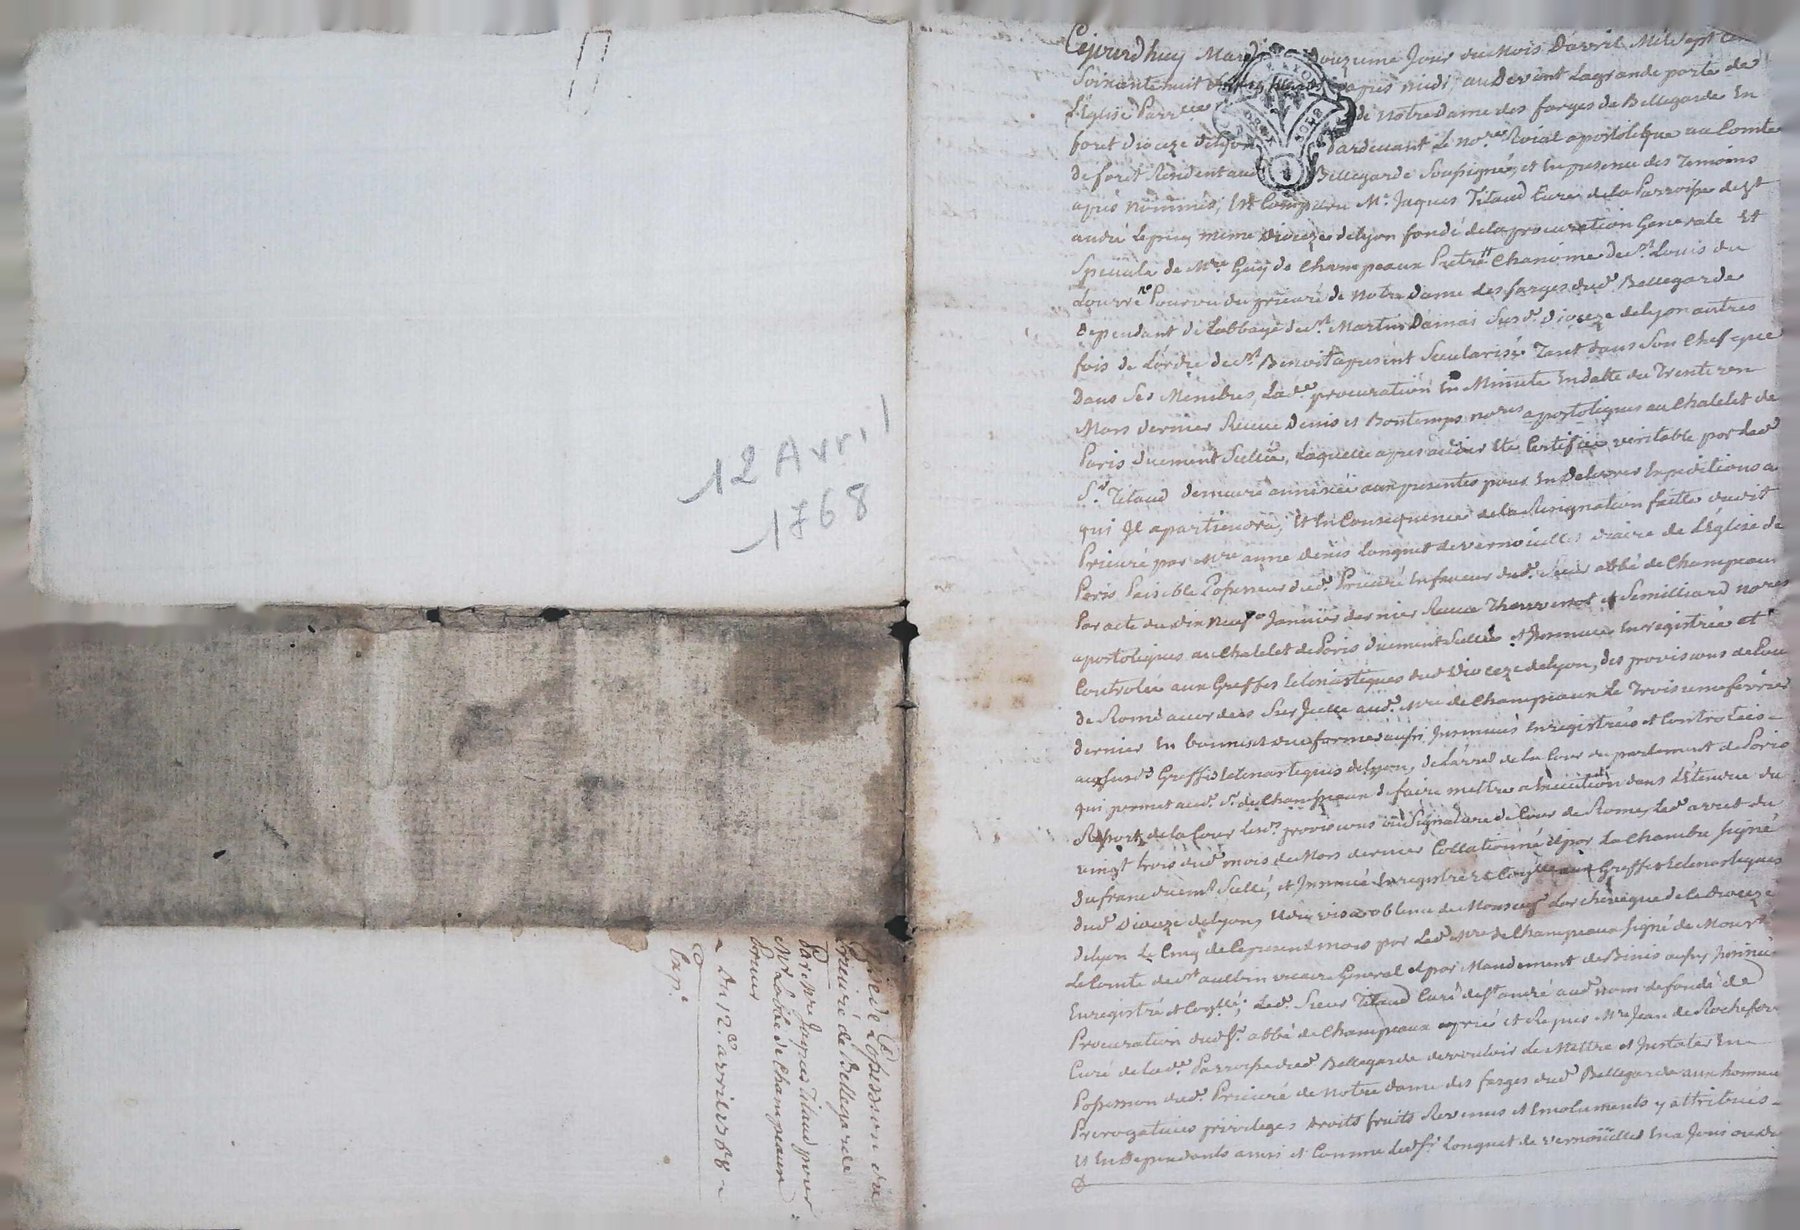 12 Avril
1768
Prieuré de Bellegarde
Par Mre Jacques Titaud pour
Mr Labbé de Champeaux
Prieur
Du 12e avril 1768
Cejourdhuy Mardi Douzieme Jour du Mois Davril Mil Sept Cent
Soixante huit apres midi, au Devant Lagrande porte de
L'Eglise de Notre Dame des farges de Bellegarde En
foret Dioceze Delyon Pardevant Le nore Roial apostolique au Comté
De foret Residant Bellegarde Soussigné, et En presence des Temoins
apres nommés, Est Comparu Mre Jaques Titaud Curé de la Parroisse de St
andré Lepuy meme Dioceze delyon fondé de la procuration Generale Et
Speciale de Mre Guy de Champeaux Pretre Chanoine de St Louis du
Louvre Pourvu du prieuré de Notre Dame des farges dud. Bellegarde
Dependant de Labbaye de St Martin Dainai Susd. Dioceze delyon autres
fois de Lordre de St Benoit apresent Secularisé Tant dans Son Chef que
Dans Ses Membres, Lade procuration En Minute Endatte du Trente
Mars dernier Recue Denis et Bontemps nores apostoliques au Chatelet de
Paris Duement Scellée, Laquelle apres avoir Eté Certifiée veritable par led.
Sr Titaud Demeure annexée aux presentes pour En Delivrer Expeditions a
qui Il apartiendra, Et En Consequence de la Resignation faitte dudit
Prieuré par Mre anne Denis Longuet de vernouillet de L'Eglise de
Paris Paisible Possesseur dud. Prieuré En faveur dud. Sieur abbé de Champeaux
Par acte du Dix Neuf Janvier dernier Recue et Semilliard nores
apostoliques au Chatelet de Paris Duement Scellé et Insinuée Enregistrée et
Controlée aux Greffes Eclesiastiques dud. Dioceze delyon, des provisions de Cour
de Rome accordées Sur Icelle aud. Mre de Champeaux Le Trois fevrier
dernier En bonne et due forme aussi Insinuées Enregistrées et Controlées
aux Susds Greffes Eclesiastiques delyon, de Larret de la Cour du parlement de Paris
qui permet aud. Sr de Champeaux de faire mettre a Execution dans L'Etendue du
Ressort de la Cour Lesds provisions ou Signature de Cour de Rome, Led. arret du
vingt trois dud. mois de Mars dernier Collationné et par La Chambre Signé
Dufranc duemt Scellé, et Insinué Enregistré et Coyllé aux Greffes Eclesiastiques
dud. Dioceze delyon, obtenu de Monseigr Larcheveque de Ce Dioceze
delyon Le Cinq de Ce present mois par Led. Mre de Champeaux Signé de Monsr
Le Comte de St aulbin vicaire General et par Mandement de Binis aussy Insinué
Enregistré et ; Led. Sieur Titaud Curé de St andré aud. nom de fondé de
Procuration dud. Sr abbé de Champeaux a prié et Requis Mre Jean de Rochefort
Curé de lade Parroisse dud. Bellegarde de vouloir Le Mettre et Instaler En
Possession dud. Prieuré de Notre Dame des farges dud. Bellegarde aux honneurs
Prerogatives privileges droits fruits Revenus et Emoluments y attribués
Et En Dependants ainsi et Comme Led. Sr Longuet de vernouillet En a Joui ou du